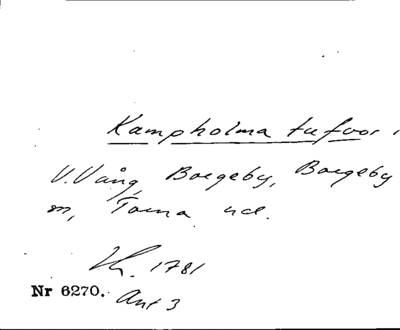 Kampholma tufvor
V. Vång, Borgeby, Borgeby
m, Torna hd.
Kh. 1781
Nr 6270. Ant 3